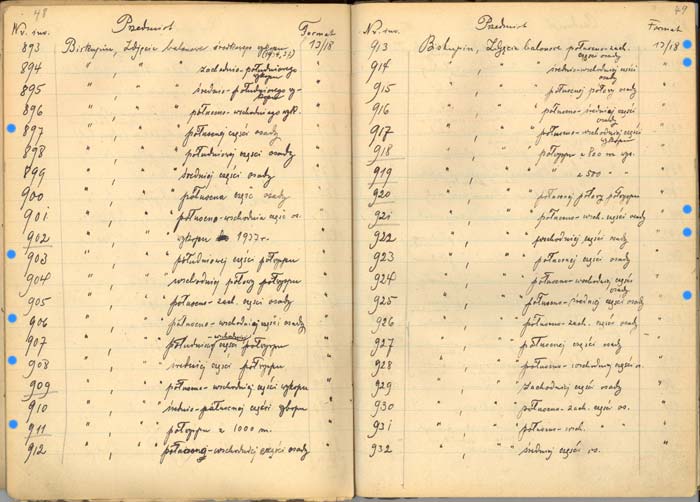 48
Nr. inw. Przedmiot Format
893 Biskupin, Zdjęcie balonowe środkowego wykopu 13/18
(1934, 35)
894 " , " " zachodnio-południowego "
wykopu
895 " , " " średnio-południowego wy- "
kopu
896 " , " " północno-wschodniego wyk. "
897 " , " " północnej części osady "
898 " , " " południowej części osady "
899 " , " " średniej części osady "
900 " , " " północna część osady "
901 " , " " północno-wschodnia część os. "
902 " , " " wykopu 1937 r. "
903 " , " " południowej części półwyspu "
904 " , " " wschodniej połowy półwyspu "
905 " , " " północno-zach. części osady "
906 " , " " północno-wschodniej części osady "
907 " , " " południowej części półwyspu "
908 " , " " średniej części półwyspu "
909 " , " " północno-wschodniej części wykopu "
910 " , " " średnio-północnej części wykopu "
911 " , " " półwyspu z 1000 m. "
912 " , " " północno-wschodniej części osady "
49
Nr. inw. Przedmiot Format
913 Biskupin, Zdjęcie balonowe północno-zach. 13/18
części osady
914 " , " " średnio-wschodniej części "
osady
915 " , " " północnej połowy osady "
916 " , " " północno-średniej części "
osady
917 " , " " północno-wschodniej części "
wykopu
918 " , " " półwyspu z 800 m wys. "
919 " , " " " z 500 " "
920 " , " " północnej połowy półwyspu "
921 " , " " północno-wsch. części osady "
922 " , " " wschodniej części osady "
923 " , " " północnej części osady "
924 " , " " północno-wschodniej części "
osady
925 " , " " północno-średniej części osady "
926 " , " " północno-zach. części osady "
927 " , " " północnej części osady "
928 " , " " północno-wschodniej części os. "
929 " , " " zachodniej części osady "
930 " , " " północno-zach. części os. "
931 " , " " północno-wsch. " "
932 " , " " średniej części os. "